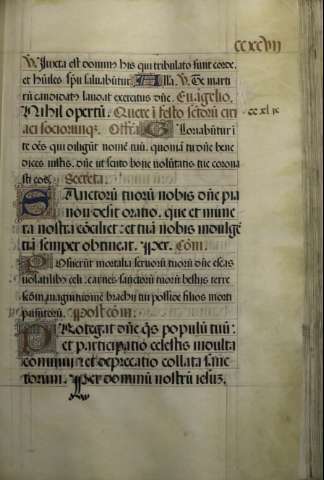 ccxcvii
V. Juxta est domin' his qui tribulato sunt corde.
et hūiles spū saluabūtur. Alla. V. Te marti
rū candidatus laudat exercitus dñe. Euangelio.
Nihil opertū. Quere ī festo sctōrū ciri
aci sociorumqz. Offīa Gloriabūtur ī
ccxlix
te oēs qui diligūt nomē tuū. quoniā tu dñe bene
dices iusto. dñe ut scuto bone volūtatis tue corona
sti eos. Secreta.
Sanctorū tuorū nobis dñe pia
non desit oratio. que et mune
ra nostra cōciliet: et tuā nobis indulgē
tiā semper obtineat. Per. Cōm.
Posuerūt mortalia seruorū tuorū dñe escas
volatilibus celi: carnes sanctorū tuorū bestijs terre
scdm magnitudinē brachij tui posside filios morti
ficatorū. Postcōm.
Protegat dñe qs populū tuū:
et participatio celestis indulta
conuiuij: et deprecatio collata sancto
torum. Per dominū nostrū iesuz.